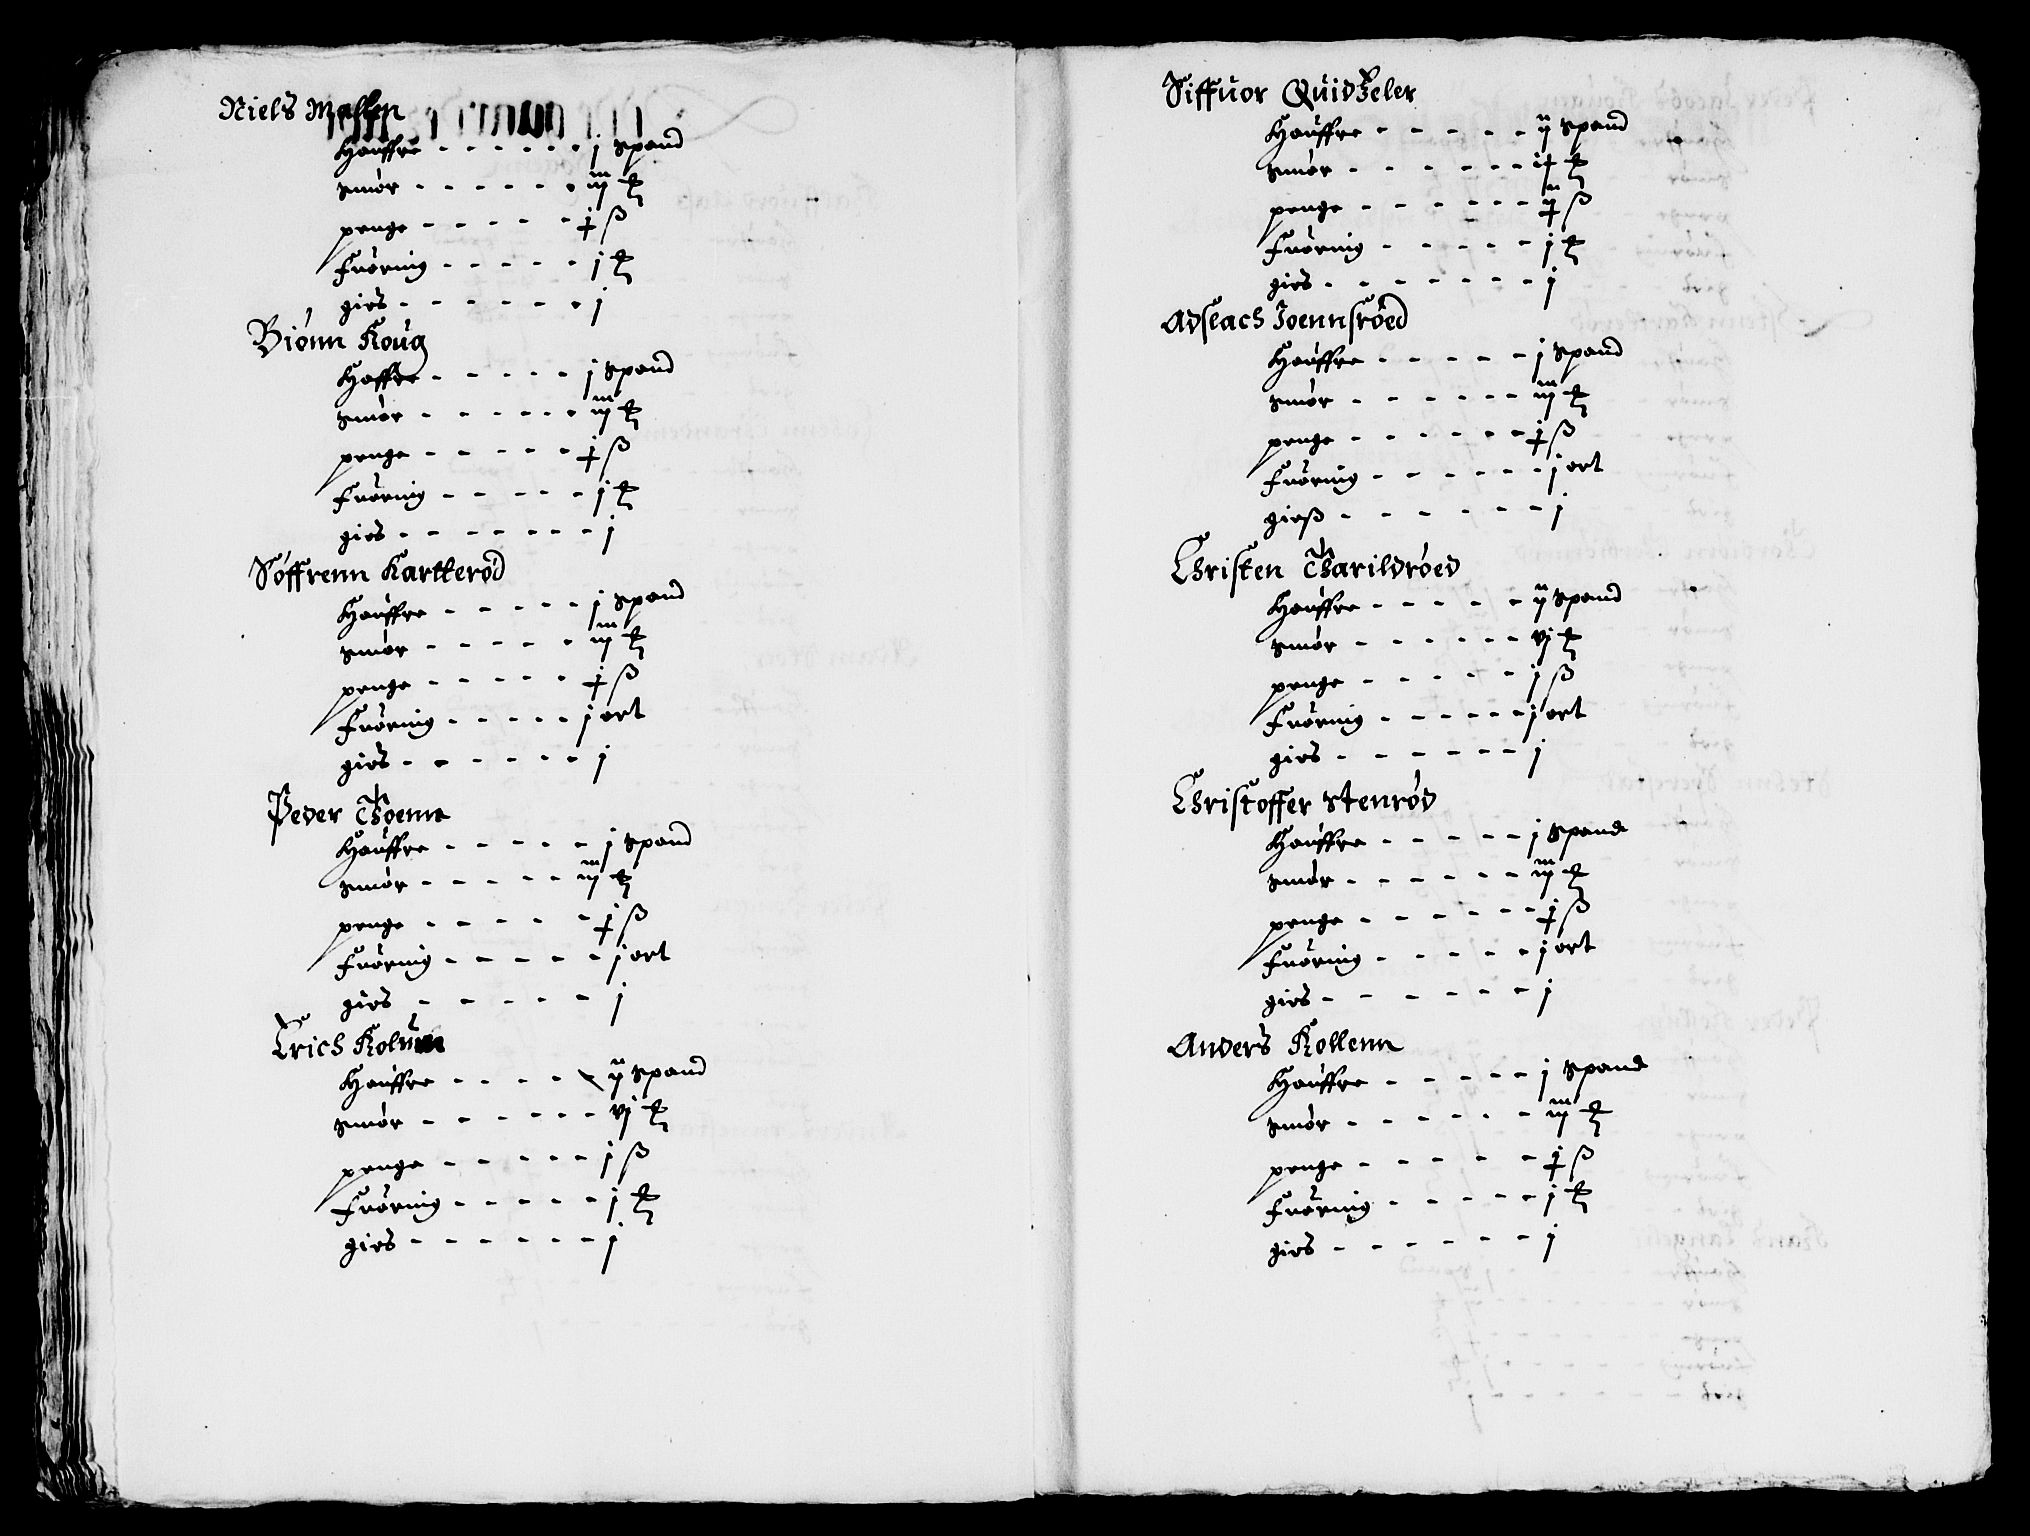 Niels Mallen
Hauffre - - - - - - j Spand
smór - - - - - - iij ℔
penge - - - - - ɉ ß
Fuóring - - - - - j ℔
gies - - - - - - j
Biónn Koug
Haffre - - - - - j Spand
smór - - - - - - iij ℔
penge - - - - - ɉ ß
Fuóring - - - - - j ℔
gies - - - - - - - j
Sóffrenn Kartteród
Hauffre - - - - - j Spand
smór - - - - - iij ℔
penge - - - - - ɉ ß
Fuóring - - - - - j ort
gies - - - - - - j
Peder Thoenn
Hauffre - - - - - j Spand
smór - - - - - iij ℔
penge - - - - - ɉ ß
Fuóring - - - - - j ort
gies - - - - - j
Erich
Hauffre - - - - - ij Spand
smór - - - - - - vj ℔
penge - - - - - j ß
Fuóring - - - - - j ℔
gies - - - - - - j
Siffuor Quidzeler
Hauffre - - - - - ij Spand
smór - - - - - - ℔
penge - - - - - - ß
Fuóring - - - - - j ℔
gies - - - - - - - j
Adslach Joennsróed
Hauffre - - - - - j Spand
smór - - - - - - iij ℔
penge - - - - - - ɉ ß
Fuóring - - - - - - j ort
gieß - - - - - - j
Christen Tharildróed
Hauffre - - - - - ij Spand
smór - - - - - - vj ℔
penge - - - - - j ß
Fuóring - - - - - j ort
gies - - - - - - j
Christoffer Stenród
Hauffre - - - - - j Spande
smór - - - - - - iij ℔
penge - - - - - - ɉ ß
Fuóring - - - - - j ort
gies - - - - - - j
Anders Kollenn
Hauffre - - - - - j Spande
smór - - - - - iij ℔
penge - - - - - ɉ ß
Fuóring - - - - - j ℔
gies - - - - - - j